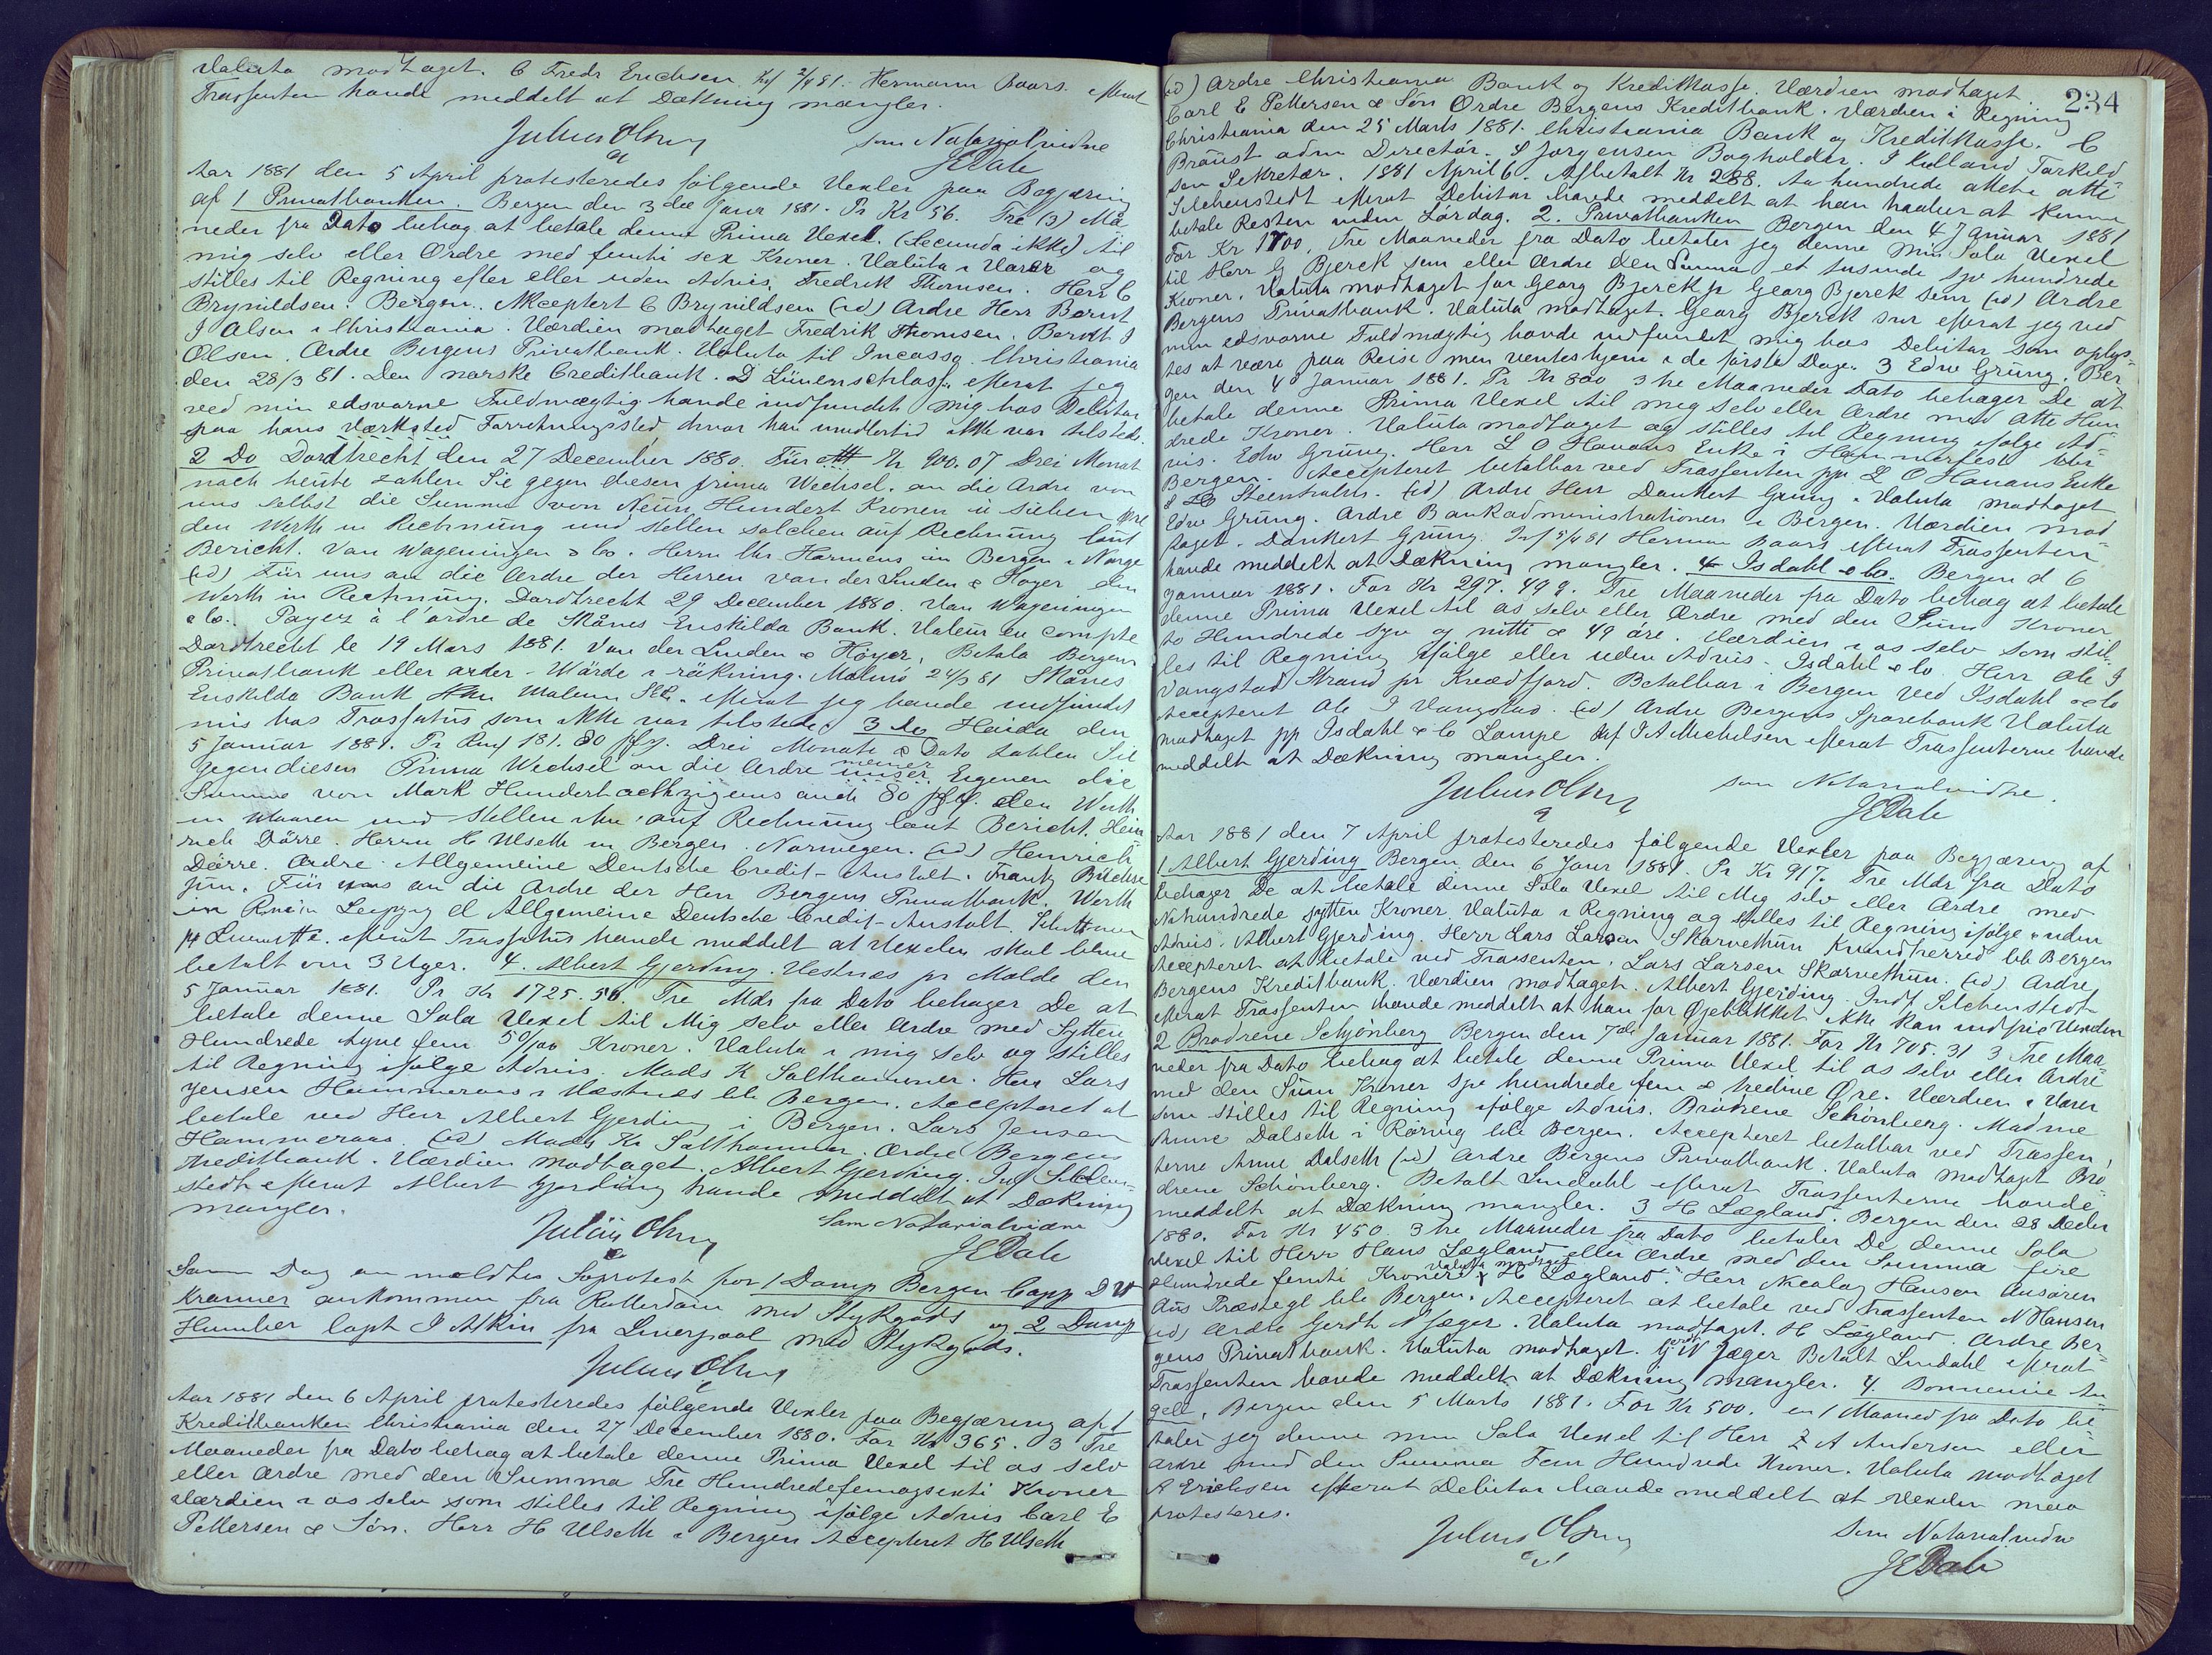 Valuta modtaget. C Fredr Erichsen Hermann Baars. efterat
Trassenten havde meddelt at Dækning mangler.
Julius Olsen som Notarialvidne
JEDale
Aar 1881 den 5 April protesteredes følgende Vexler paa Begjæring
af 1 Privatbanken. Bergen den 3die Janr 1881. Pr Kr 56. Tre (3) Må-
neder fra Dato behag at betale denne Prima Vexel. (Secunda ikke) til
mig selv eller Ordre med femti sex Kroner. Valuta i Varer og
stilles til Regning efter eller uden Advis. Fredrik Thomsen. Herr C
Brynildsen. Bergen. Akceptert C Brynildsen (id) Ordre Herr Berndt
J Olsen i Christiania. Værdien modtaget Fredrik Thomsen. Berndt J
Olsen. Ordre Bergens Privatbank. Valuta til Incasso. Christiania
den 28/3 81. Den norske Creditbank. D Lünenschloss. efterat jeg
ved min edsvorne Fuldmægtig havde indfundet mig hos Debitor
paa hans Værksted Forretningssted hvor han imidlertid ikke var tilstede.
2 Do Dordtrecht den 27 December 1880. Für Kr 900.07 Drei Monat
nach heute zahlen Sie gegen diesen prima Wechsel. an die Ordre von
uns selbst die Summa von Neün Hundert Kronen u sieben øre
den Werth in Rechnüng und stellen solchen auf Rechnüng laut
Bericht. Van Wageningen & Co. Herrn Chr Harmens in Bergen i Norge
(id) Für uns an die Ordre der Herren van der Linden & Hoyer den
Werth in Rechnüng. Dordtrecht 29 December 1880. Van Wageningen
& Co. Payez à l'ordre de Skånes Enskilda Bank. Valeur en compte
Dordtrecht le 19 Mars 1881. Van der Linden & Höyer, Betala Bergens
Privatbank eller order. Wärde i räkning. Malmö 24/3 81 Skånes
Enskilda Bank efterat jeg havde indfundet
mig hos Trassatus som ikke var tilstede. 3 do Haida den
5 Januar 1881. Pr Rm 181.80 pfg. Drei Monate a Dato zahlen Sie
gegen diesen Prima Wechsel an die Ordre meiner Eigenen die
Summe von Mark Hundertachtzigeins auch 80 pfg. den Werth
in Waaren und stellen ihn auf Rechnüng laut Bericht. Hein-
rich Dörre. Herrn H Ulseth in Bergen. Norwegen. (id) Heinrich
Dörre. Ordre Allgemeine Deutsche Credit-Anstalt. Frantz
jün. Für uns an die Ordre der Herr Bergens Privatbank. Werth
in Leipzig Allgemeine Deutsche Credit-Anstalt.
efterat Trassatus havde meddelt at Vexelen skal blive
betalt om 3 Uger. 4. Albert Gjerding. Vestnæs pr Molde den
5 Januar 1881. Pr Kr 1725.50. Tre Mdr fra Dato behager De at
betale denne Sola Vexel til Mig selv eller Ordre med Sytten
Hundrede tyve fem 50/100 Kroner. Valuta i mig selv og stilles
til Regning ifølge Advis. Mads K Salthammer. Herr Lars
Jensen Hammeraas i Vestnæs bli Bergen. Accepteret at
betale ved Herr Albert Gjerding i Bergen. Lars Jensen
Hammeraas. (id) Mads K Salthammer. Ordre Bergens
Kreditbank. Værdien modtaget. Albert Gjerding. Inf Silchen-
stedt efterat Albert Gjerding havde meddelt at Dækning
mangler.
Julius Olsen Som Notarialvidne
JEDale
Samme Dag anmeldtes Søprotest for 1 Damp Bergen Capp D W
Kramer ankommen fra Rotterdam med Stykgods og 2 Damp
Humber Capt J Atkin fra Liverpool med Stykgods.
Julius Olsen
Aar 1881 den 6 April protesteredes følgende Vexler paa Begjæring af 1
Kreditbanken Christiania den 27 December 1880. For Kr 365. 3 Tre
Maaneder fra Dato behag at betale denne Prima Vexel til os selv
eller Ordre med den Summa Tre Hundredefemogsexti Kroner
Værdien i os selv som stilles til Regning ifølge Advis Carl E
Pettersen & Søn. Herr H Ulseth i Bergen Accepteret H Ulseth
234
(id) Ordre Christiania Bank og Kreditkasse. Værdien modtaget
Carl E Pettersen & Søn Ordre Bergens Kreditbank. Værdien i Regning
Christiania den 25 Marts 1881. Christiania Bank og Kreditkasse. C
Braust adm Director. S Jørgensen Bogholder. J Kulland Torkeld-
sen Sekretær. 1881 April 6. Afbetalt Kr 288. to hundrede otteti otte
Silchenstedt efterat Debitor havde meddelt at han haaber at kunne
betale Resten inden Lørdag. 2. Privatbanken Bergen den 4 Januar 1881
For Kr 1700. Tre Maaneder fra Dato betaler jeg denne min Sola Vexel
til Herr G Bjerck sen eller Ordre den Summa et tusinde syv hundrede
Kroner. Valuta modtaget for Georg Bjerck jr Georg Bjerck senr (id) Ordre
Bergens Privatbank. Valuta modtaget. Georg Bjerck snr efterat jeg ved
min edsvorne Fuldmægtig havde indfundet mig hos Debitor som oplys-
tes at være paa Reise men ventes hjem i de første Dage. 3 Edw Grung. Ber-
gen den 4d Januar 1881. Pr Kr 800 3 tre Maaneder Dato behager De at
betale denne Prima Vexel til mig selv eller Ordre med Otte Hun-
drede Kroner. Valuta modtaget og stilles til Regning ifølge Ad-
vis. Edw Grung. Herr L O Hanans Enke i Hammerfest bli
Bergen. Accepteret betalbar ved Trassenten pp. L O Hanans Enke
(id) Ordre Herr Dankert Grung. Valuta modtaget
Edw Grung. Ordre Bankadministrationen i Bergen. Værdien mod-
taget. Dankert Grung. Inf 5/4 81 Herman Baars efterat Trassenten
havde meddelt at Dækning mangler. 4 Isdahl & Co. Bergen d 6
Januar 1881. For Kr 297.49 ø. Tre Maaneder fra Dato behag at betale
denne Prima Vexel til os selv eller Ordre med den Sum Kroner
to Hundrede syv og nitti & 49 øre. Værdien i os selv som stil-
les til Regning ifølge eller uden Advis. Isdahl & Co. Herr Ole J
Vangstad Strand pr Kvædfjord. Betalbar i Bergen ved Isdahl & Co
Accepteret Ole J Vangstad. (id) Ordre Bergens Sparebank Valuta
modtaget pp Isdahl & Co Lampe Inf J A Michelsen efterat Trassenterne havde
meddelt at Dækning mangler.
Julius Olsen som Notarialvidne.
JEDale
Aar 1881 den 7 April protesteredes følgende Vexler paa Begjæring af
1 Albert Gjerding Bergen den 6 Janr 1881. Pr Kr 917. Tre Mdr fra Dato
behager De at betale denne Sola Vexel til Mig selv eller Ordre med
Nihundrede sytten Kroner. Valuta i Regning og stilles til Regning ifølge uden
Advis. Albert Gjerding. Herr Lars Larsen Skorvethun Kvindherred bli Bergen
Accepteret at betale ved Trassenten. Lars Larsen Skorvethun. (id) Ordre
Bergens Kreditbank. Værdien modtaget. Albert Gjerding. Inf Silchenstedt
efterat Trassenten havde meddelt at han for Øjeblikket ikke kan indfrie Vexelen
2 Brødrene Schønberg Bergen den 7de Januar 1881. For Kr 705.31 3 Tre Maa-
neder fra Dato behag at betale denne Prima Vexel til os selv eller Ordre
med den Sum Kroner syv hundrede fem & tredive Øre. Værdien i Varer
som stilles til Regning ifølge Advis. Brødrene Schønberg. Madme
Anne Dalseth i Røring bli Bergen. Accepteret betalbar ved Trassen-
terne Anne Dalseth (id) Ordre Bergens Privatbank. Valuta modtaget Brø-
drene Schønberg. Betalt Lindahl efterat Trassenterne havde
meddelt at Dækning mangler. 3 H Lægland. Bergen den 28 Decbr
1880. For Kr 450. 3 tre Maaneder fra Dato betaler De denne Sola
Vexel til Herr Hans Lægland eller Ordre med den Summa fire
Hundrede femti Kroner Valuta modtaget H Lægland. Herr Nicolay Hansen Ansøren
Aus Præstegl bli Bergen. Accepteret at betale ved Trassenten N Hansen
(id) Ordre Gerdt N Jæger. Valuta modtaget. H Lægland. Ordre Ber-
gens Privatbank. Valuta modtaget. Gerdt N Jæger Betalt Lindahl efterat
Trassenten havde meddelt at Dækning mangler. 4. Bonnevie An-
gell, Bergen den 5 Marts 1881. For Kr 500. en 1 Maaned fra Dato be-
taler jeg denne min Sola Vexel til Herr Z A Andersen eller
ordre med den Summa Fem Hundrede Kroner. Valuta modtaget
A Erichsen efterat Debitor havde meddelt at Vexelen maa
protesteres.
Julius Olsen Som Notarialvidne
JEDale